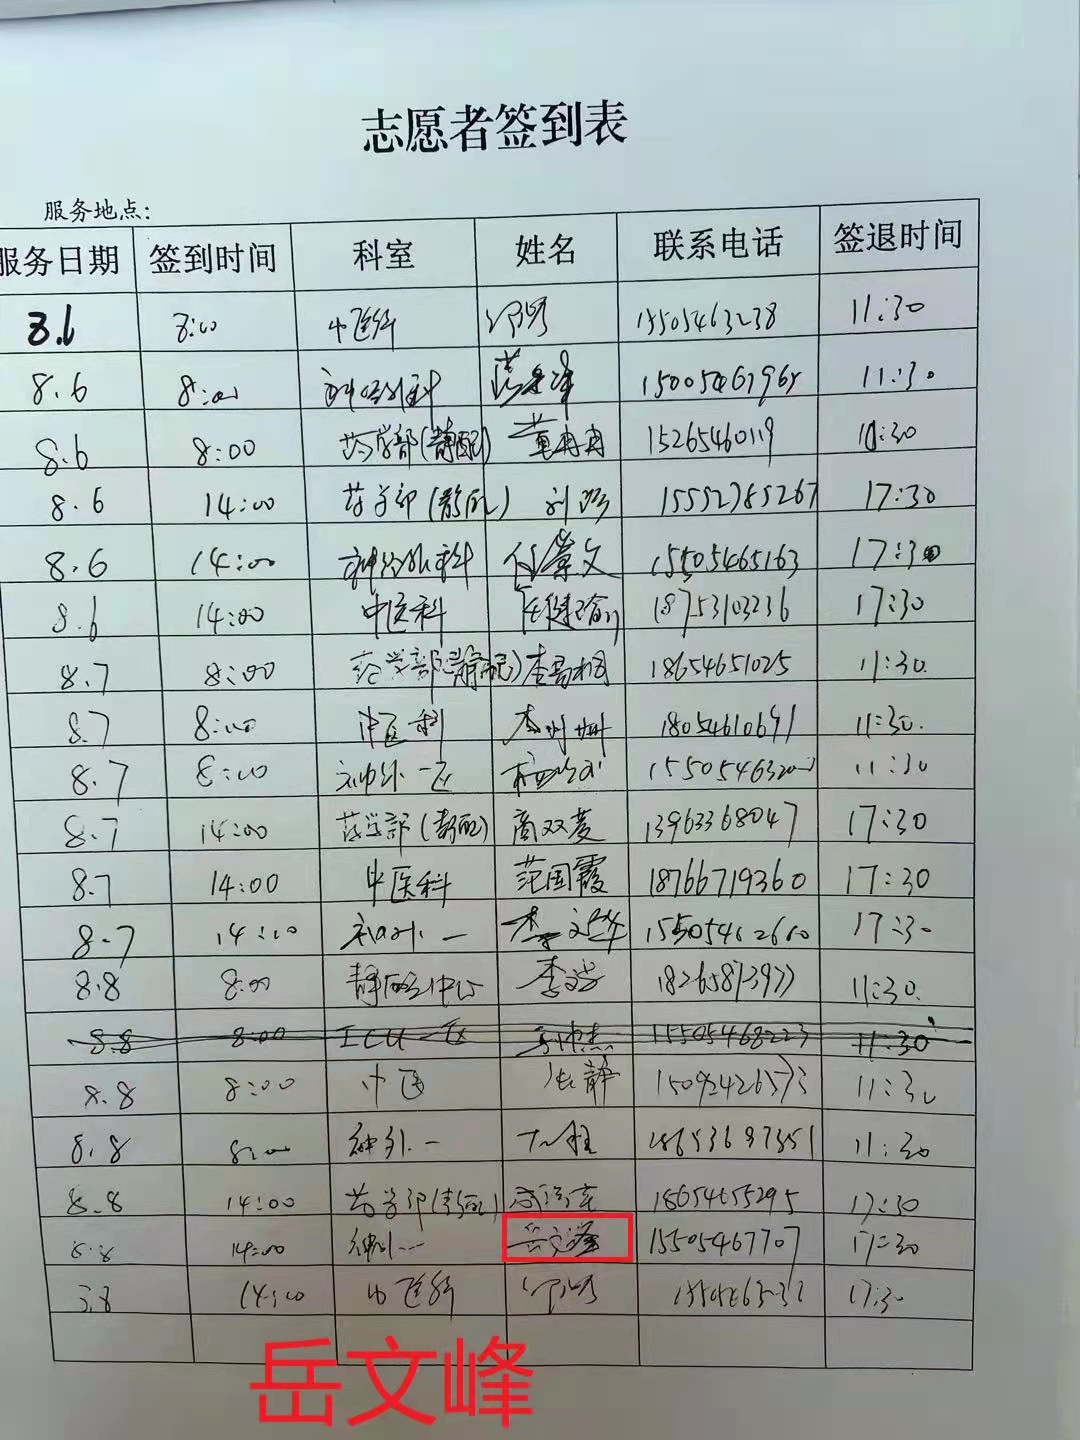 志愿者签到表
服务地点:
服务日期 签到时间 科室 姓名 联系电话 签退时间
8.6 8:00 中医科 15505463238 11:30
8.6 8:00 神经外科 11:30
8.6 8:00 药学部(静配) 董冉冉 15265460119 11:30
8.6 14:00 药学部(静配) 15552785267 17:30
8.6 14:00 神经外科 付崇文 15505465163 17:30
8.6 14:00 中医科 任健瑜 18753103236 17:30
8.7 8:00 药学部(静配) 18654651025 11:30
8.7 8:00 中医科 李姗姗 18054610691 11:30.
8.7 8:00 神外一区 11:30
8.7 14:00 药学部(静配) 商双菱 13963368047 17:30
8.7 14:00 中医科 范国霞 18766719360 17:30
8.7 14:00 神外一 李文华 15505462660 17:30
8.8 8:00 静配中心 11:30.
8.8 8:00 ICU一区 15505468223 11:30
8.8 8:00 中医 张静 11:30
8.8 8:00 神外一 18653697351 11:30
8.8 14:00 药学部(静配) 18654655295 17:30
8.8 14:00 神外一 岳文峰 15505467707 17:30
8.8 14:00 中医科 17:30
岳文峰